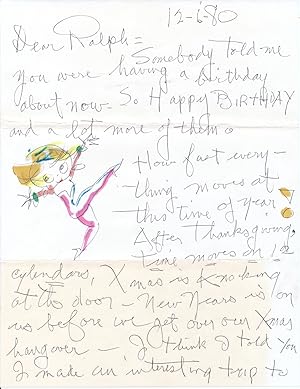 12-6-80
Dear Ralph =
Somebody told me
you were having a birthday
about now - So Happy BIRTHDAY
and a lot more of them.
How fast every-
thing moves at
this time of year!
After Thanksgiving,
time moves on 12
cylenders, Xmas is knocking
at the door - New Years is on
us before we get over our Xmas
hangover - I think I told you
I made an interesting trip to